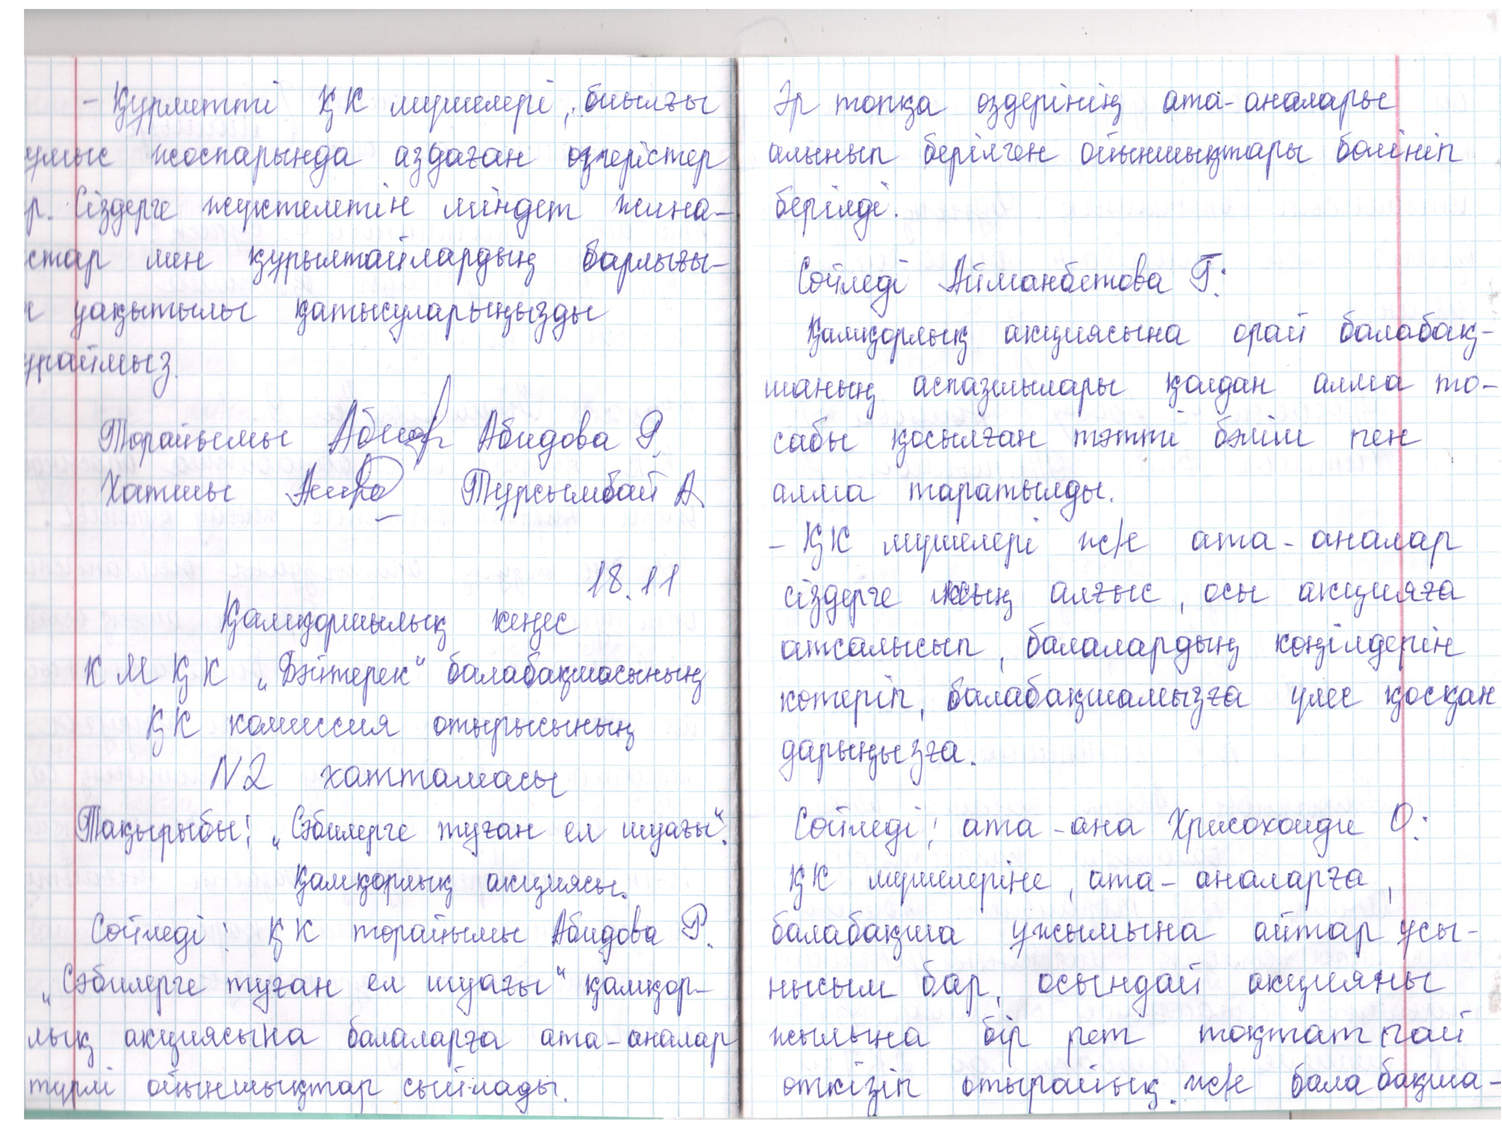 - Құрметті ҚК мүшелері, биылғы
ұмыс жоспарында аздаған өзгерістер
р. Сіздерге жүктелетін міндет жина-
стар мен құрылтайлардың барлығы-
а уақытылы қатысуларыңызды
ұраймыз.
Төрайымы Абидова Р.
Хатшы Тұрсымбай А
18.11
Қамқоршылық кеңес
КМҚК „Бәйтерек" балабақшасының
ҚК комиссия отырысының
N2 хаттамасы
Тақырыбы: „Сәбилерге туған ел шуағы".
Қамқорлық акциясы.
Сөйледі: ҚК төрайымы Абидова Р.
„Сәбилерге туған ел шуағы" қамқор-
лық акциясына балаларға ата-аналар
түрлі ойыншықтар сыйлады.
Әр топқа өздерінің ата-аналары
алынып берілген ойыншықтары бөлініп
берілді.
Сөйледі Айманбетова Г:
Қамқорлық акциясына орай балабақ-
шаның аспазшылары қолдан алма то-
сабы қосылған тәтті бәліш пен
алма таратылды.
- ҚК мүшелері ж/е ата-аналар
сіздерге шың алғыс, осы акцияға
атсалысып, балалардың көңілдерін
көтеріп, балабақшамызға үлес қосқан
дарыңызға.
Сөйледі: ата-ана Хрисохоиди О:
ҚК мүшелеріне, ата-аналарға,
балабақша ұжымына айтар ұсы-
нысым бар, осындай акцияны
жылына бір рет тоқтатпай
өткізіп отырайық ж/е балабақша-